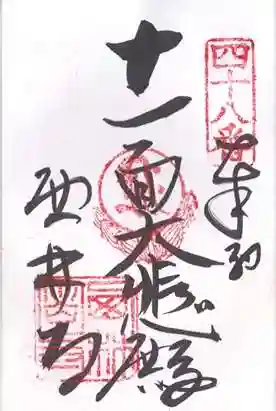 四十八番
奉拝
十一面大悲殿
西林寺